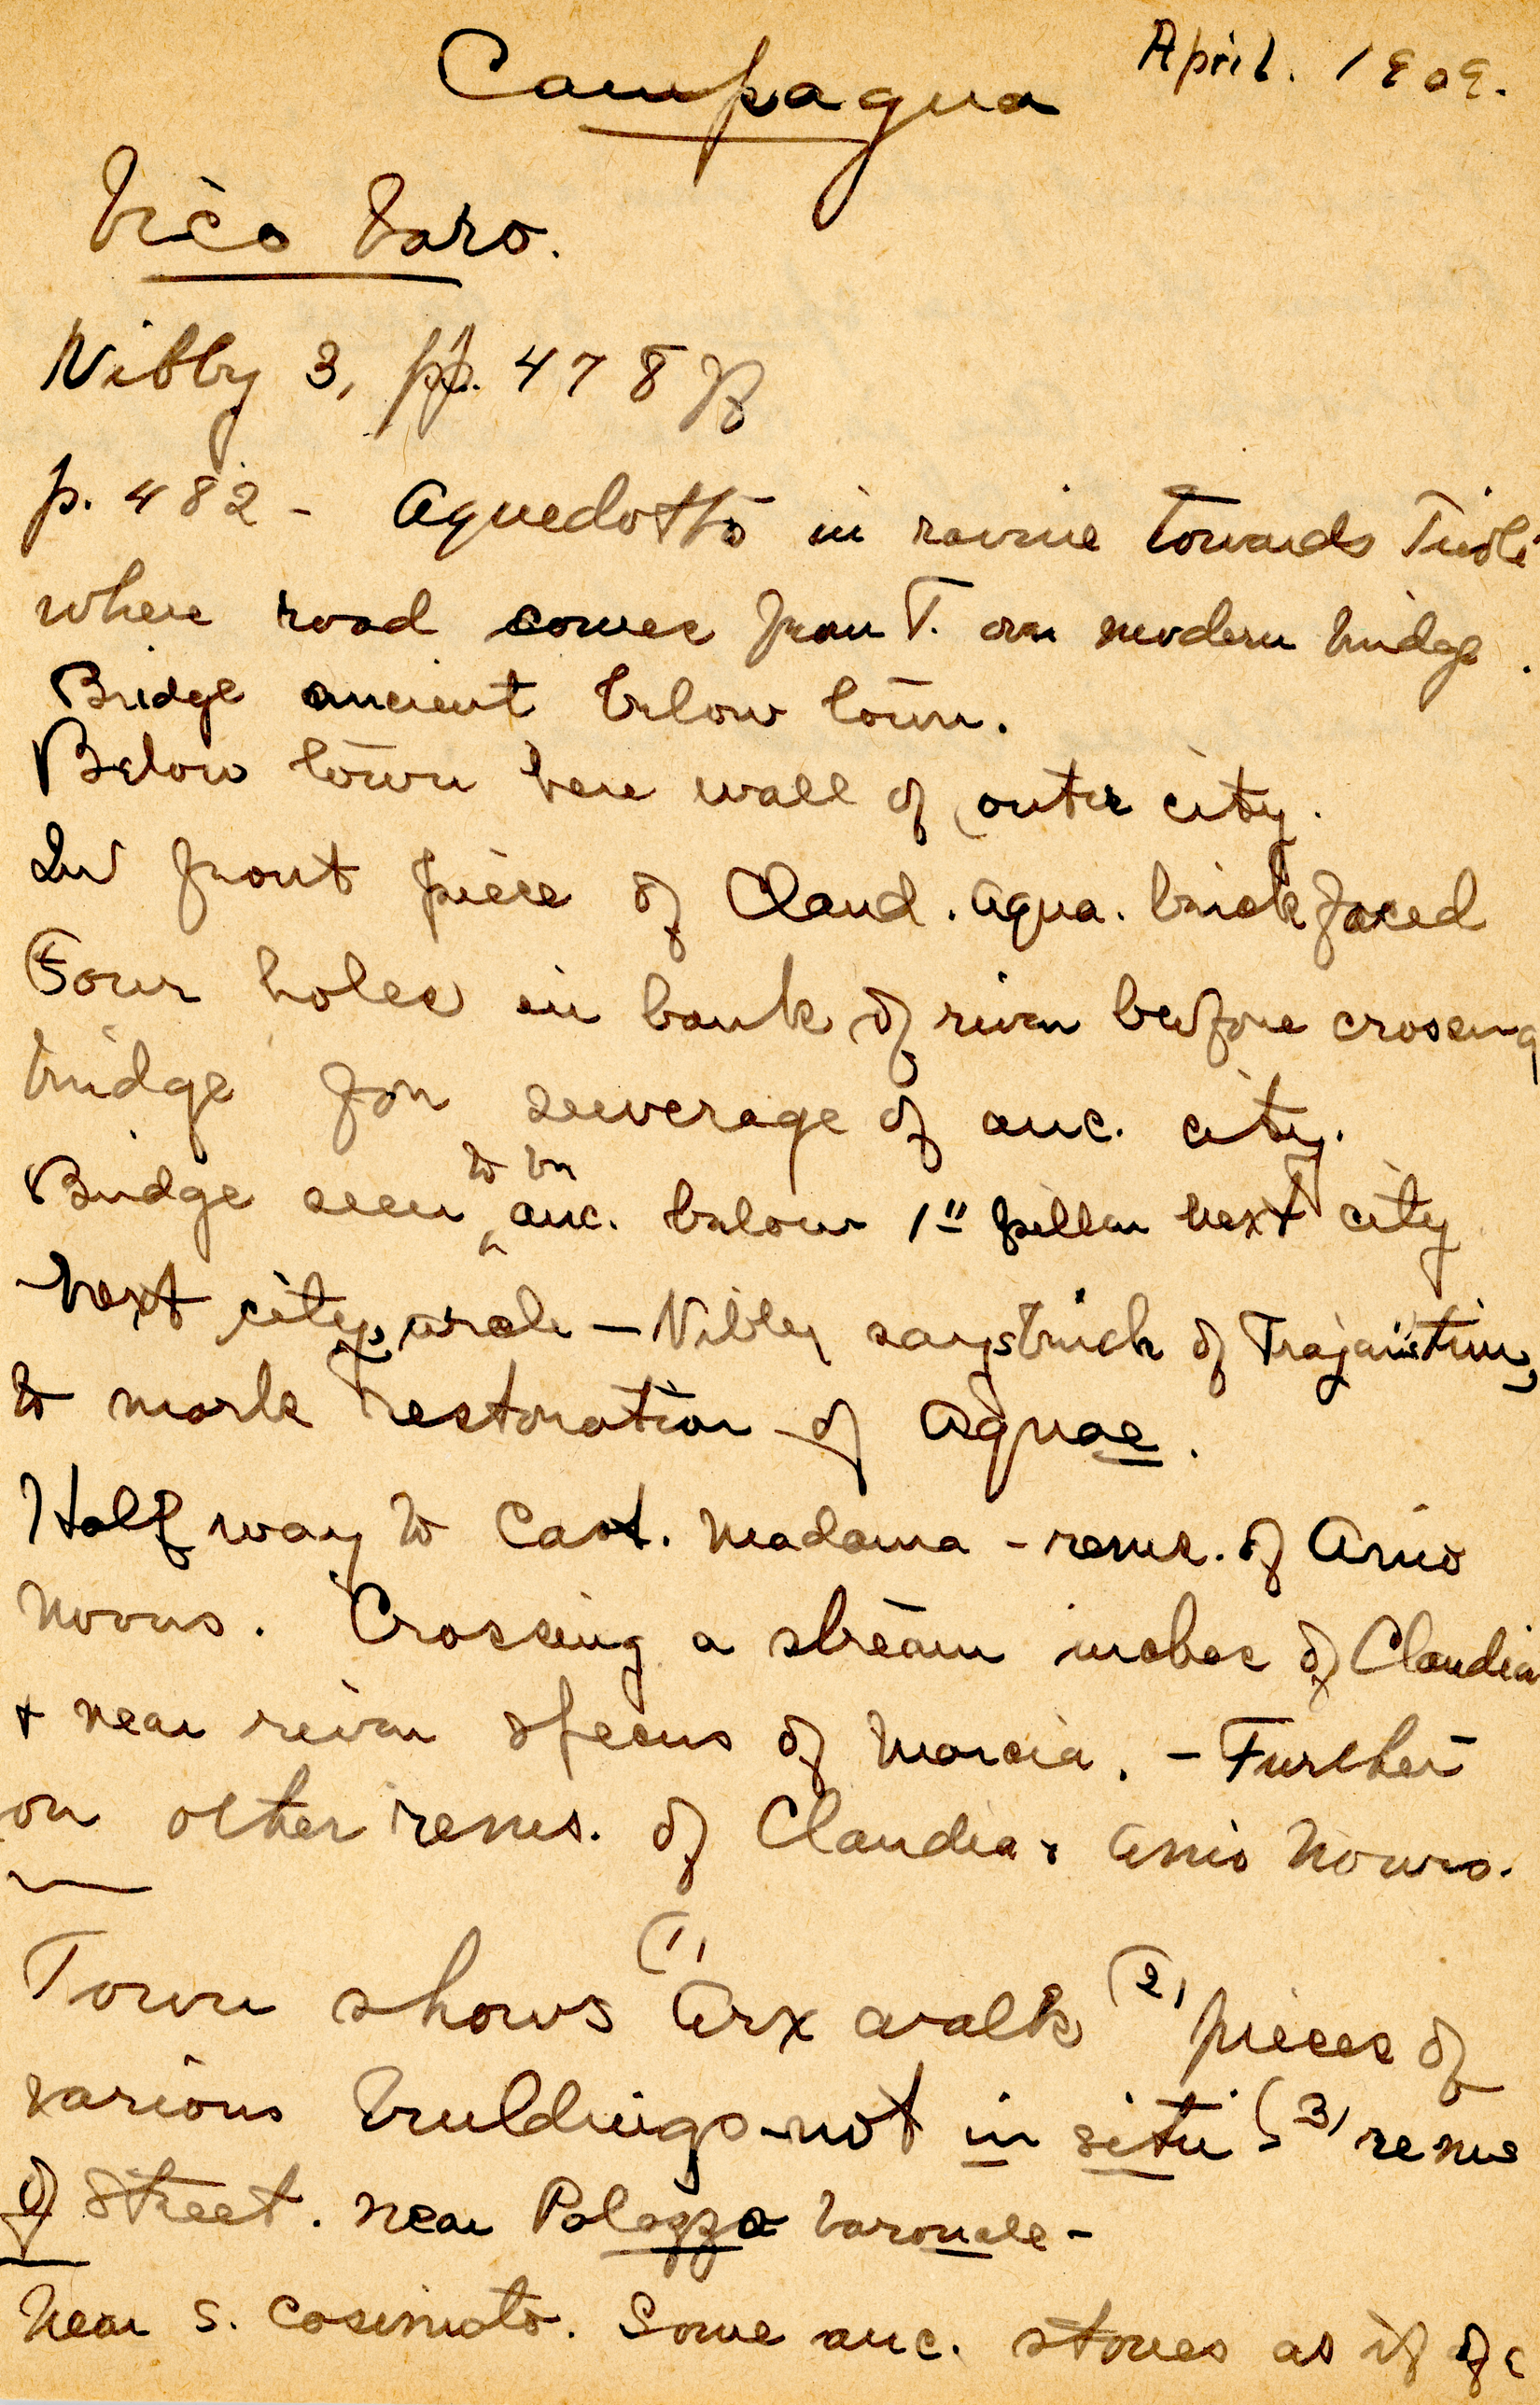 Campagna April. 1909.
Vico Varo.
Nibby 3, pp. 478 ff
p. 482 - Aquedotto in ravine towards Tivoli
where road comes from T. over modern bridge.
Bridge ancient below town.
Below town here wall of outer city.
In front piece of Claud. Aqua. brick faced
Four holes in bank of river before crossing
bridge for sewerage of anc. city.
Bridge seen to be anc. below 1st pillar next city
Next city, arch - Nibby says brick of Trajan's time,
to mark restoration of aquae.
Half way to Cast. Madama - rems. of Anio
Novus. Crossing a stream of Claudia
+ near river specus of Marcia. - Further
on other rems. of Claudia + Anio Novus.
Town shows (1) Arx walls (2) pieces of
various buildings - not in situ (3) rems
of street. near Palazzo baronale -
Near S. Cosimato. Some anc. stones as if of